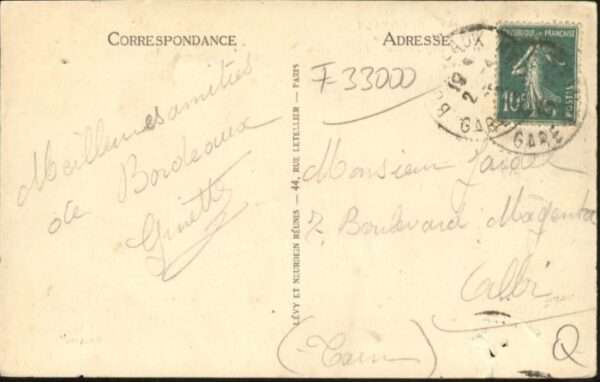 CORRESPONDANCE
ADRESSE
F33000
RÉPUBLIQUE FRANÇAISE
10c
POSTES
BORDEAUX
GARE
GARE
Meilleures amitiés
de Bordeaux
Ginette
LÉVY ET NEURDEIN RÉUNIS — 44, RUE LETELLIER — PARIS
Monsieur
7. Boulevard Magenta
Albi
(Tarn)
Q